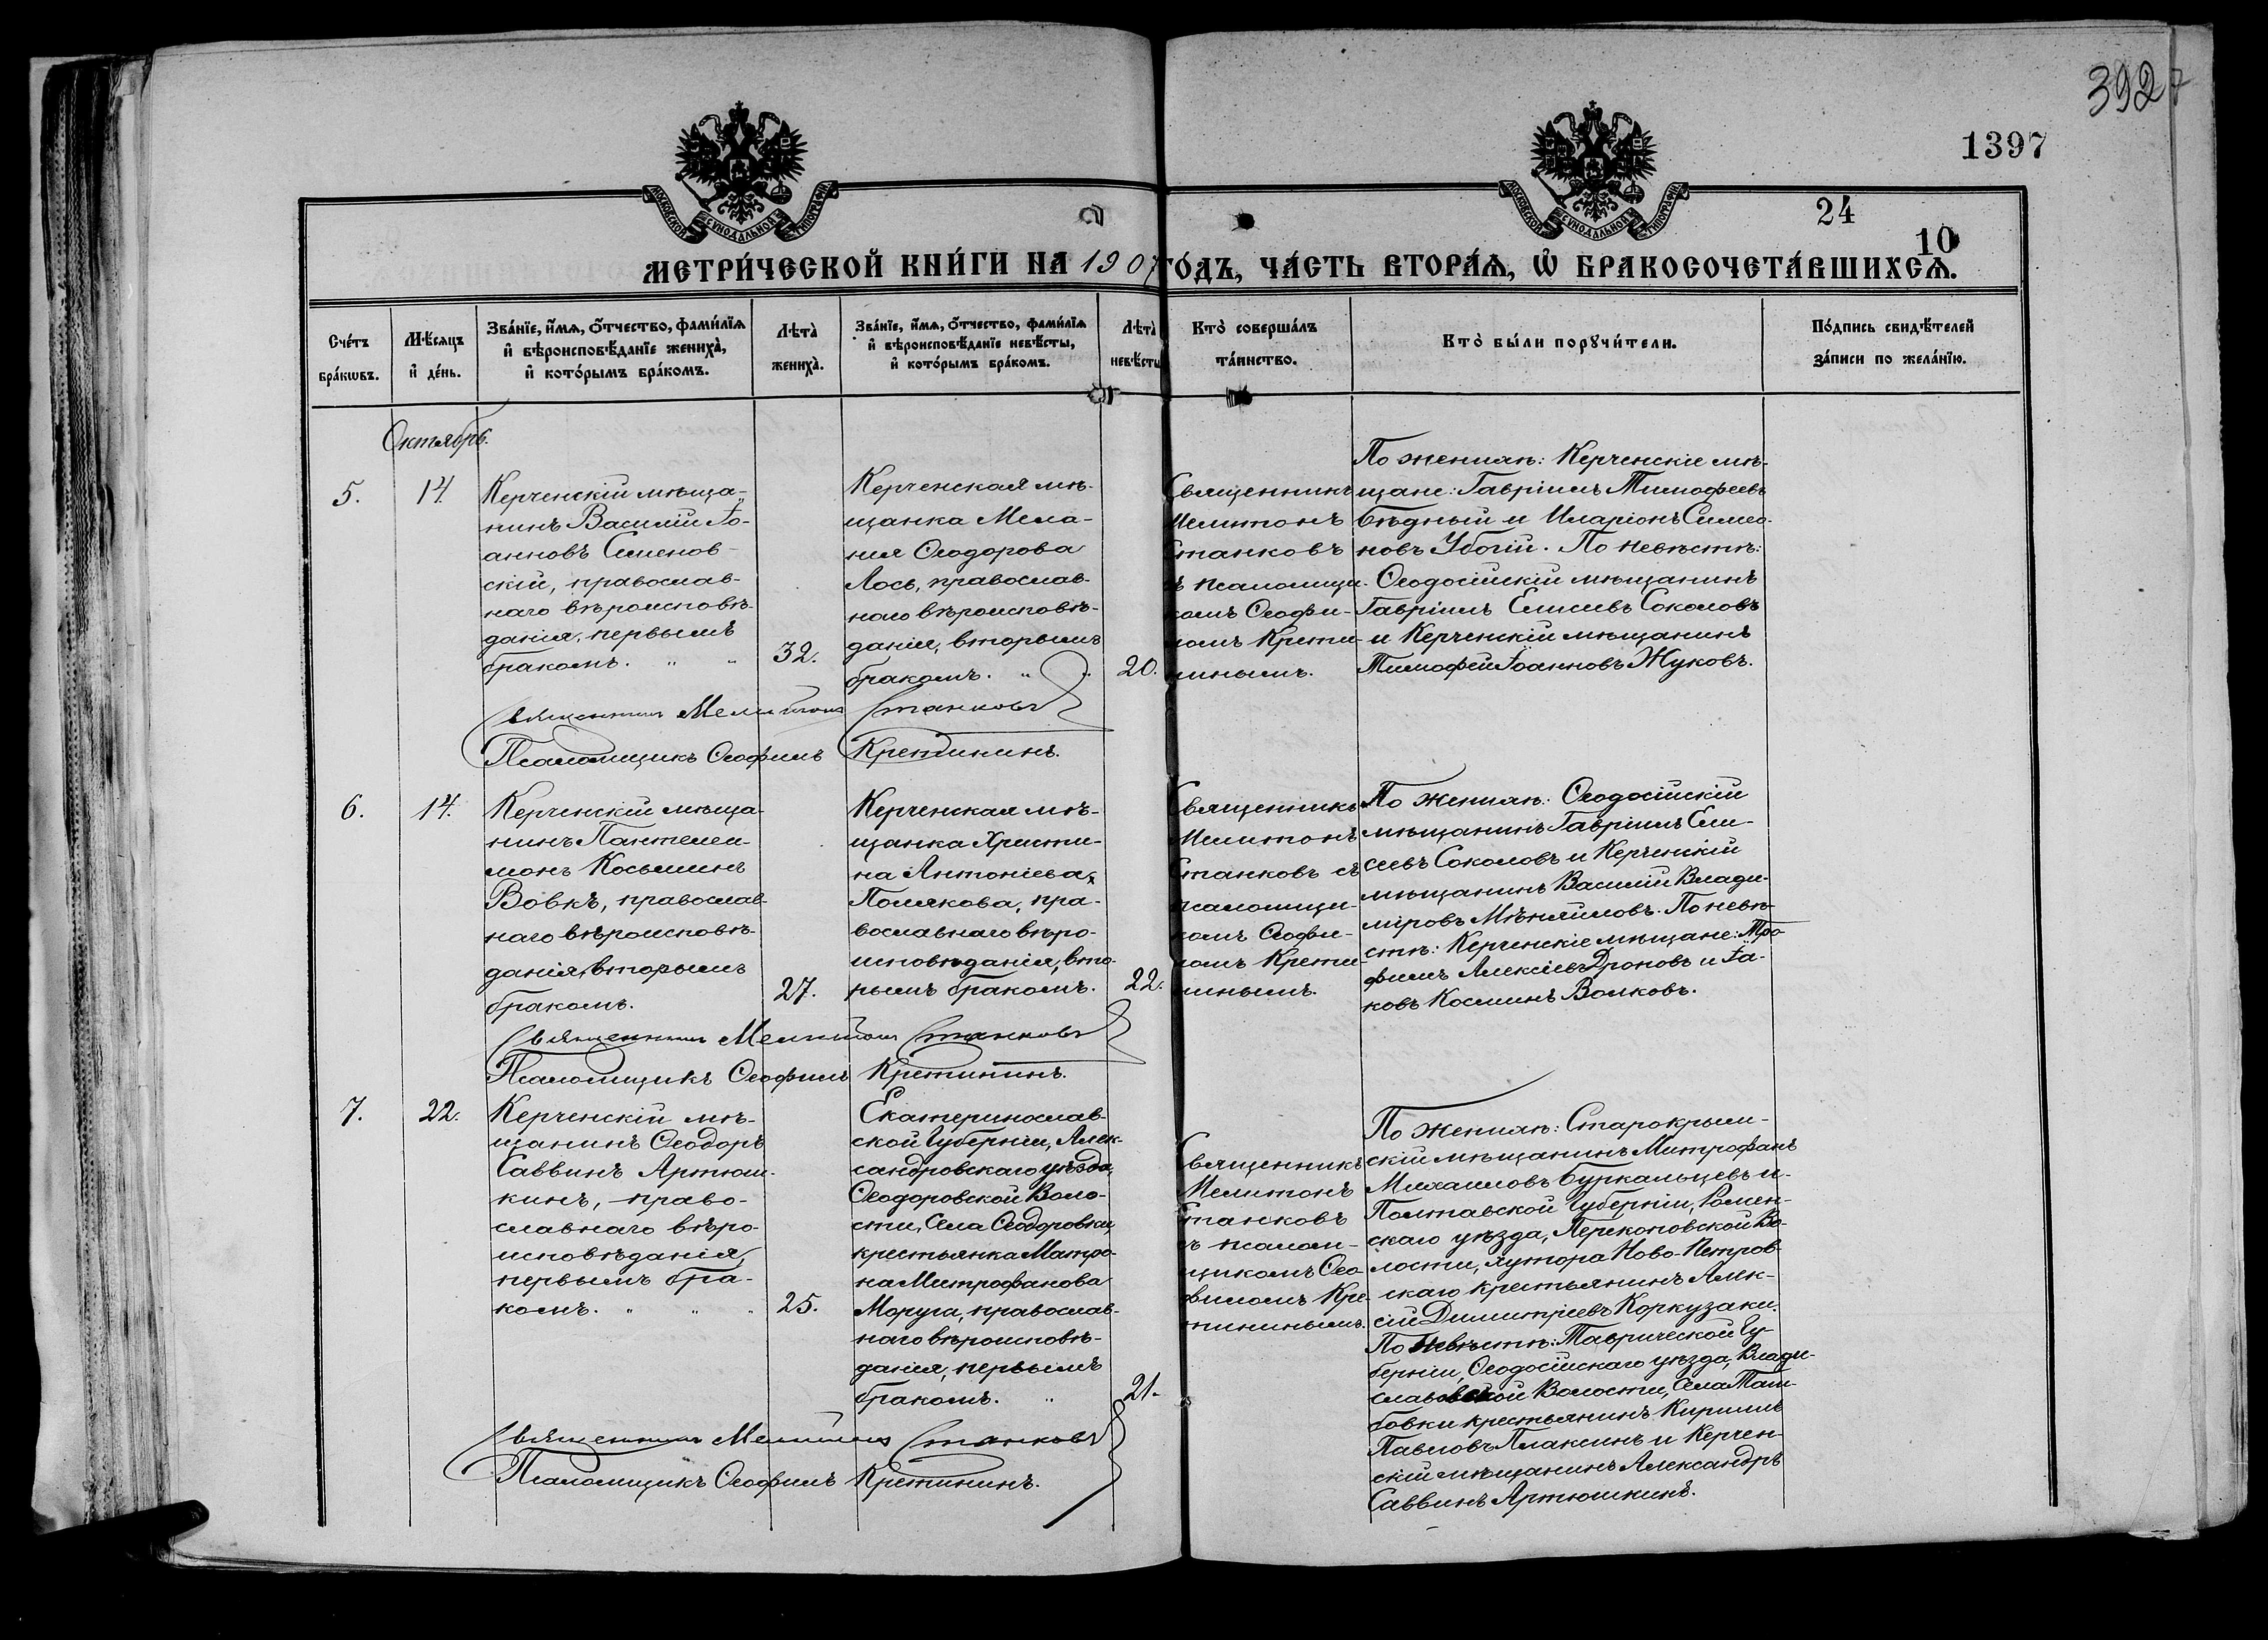 392
7
1397
24
10
МОСКОВСКОЙ СѴНОДАЛЬНОЙ ТИПОГРАФІИ
МОСКОВСКОЙ СѴНОДАЛЬНОЙ ТИПОГРАФІИ
МЕТРИ́ЧЕСКОЙ КНИ́ГИ НА 1907 ГО́ДЪ, ЧА́СТЬ ВТОРА́Ѧ, Ѡ҆ БРАКОСОЧЕТА́ВШИХСѦ.
Сче́тъ
бра́кѡвъ.
Мѣ́сѧцъ
и҆ де́нь.
Зва́нїе, и҆́мѧ, ѻ҆́тчество, фами́лїѧ
и҆ вѣроисповѣ́данїе жениха̀,
и҆ кото́рымъ бра́комъ.
Лѣта̀
жениха̀.
Зва́нїе, и҆́мѧ, ѻ҆́тчество, фами́лїѧ
и҆ вѣроисповѣ́данїе невѣ́сты,
и҆ кото́рымъ бра́комъ.
Лѣта̀
невѣ́сты
Кто̀ соверша́лъ
та́инство.
Кто̀ бы́ли порꙋчи́тели.
По́дпись свидѣ́телей
за́писи по жела́нїю.
Октябрь.
5.
14.
Керченскій мѣща-
нинъ Василій Іо-
анновъ Семенов-
скій, православ-
наго вѣроисповѣ-
данія, первымъ
бракомъ. " "
32.
Керченская мѣ-
щанка Мела-
нія Ѳеодорова
Лось, православ-
наго вѣроисповѣ-
данія, вторымъ
бракомъ. " "
20.
Священникъ
Мелитонъ
Станковъ
съ псаломщи-
комъ Ѳеофи-
ломъ Крети-
нинымъ.
По женихѣ: Керченскіе мѣ-
щане: Гавріилъ Тимофеевъ
Бѣдный и Иларіонъ Симео-
новъ Убогій. По невѣстѣ:
Ѳеодосійскій мѣщанинъ
Гавріилъ Елисѣевъ Соколовъ
и Керченскій мѣщанинъ
Тимофей Іоанновъ Жуковъ.
Священникъ Мелитонъ Станковъ
Псаломщикъ Ѳеофилъ Кретининъ.
6.
14.
Керченскій мѣща-
нинъ Пантелеи-
монъ Косьминъ
Вовкъ, православ-
наго вѣроисповѣ-
данія, вторымъ
бракомъ.
27.
Керченская мѣ-
щанка Христи-
на Антоніева
Полякова, пра-
вославнаго вѣро-
исповѣданія, вто-
рымъ бракомъ.
22.
Священникъ
Мелитонъ
Станковъ съ
псаломщи-
комъ Ѳеофи-
ломъ Крети-
нинымъ.
По женихѣ: Ѳеодосійскій
мѣщанинъ Гавріилъ Ели-
сеевъ Соколовъ и Керченскій
мѣщанинъ Василій Влади-
міровъ Мѣняйловъ. По невѣ-
стѣ: Керченскіе мѣщане: Тро-
фимъ Алексіевъ Дроновъ и Іа-
ковъ Косминъ Волковъ.
Священникъ Мелитонъ Станковъ
Псаломщикъ Ѳеофилъ Кретининъ.
7.
22.
Керченскій мѣ-
щанинъ Ѳеодоръ
Саввинъ Артюш-
кинъ, право-
славнаго вѣро-
исповѣданія,
первымъ бра-
комъ. " " "
25.
Екатеринослав-
ской Губерніи, Алек-
сандровскаго уѣзда,
Ѳеодоровской Воло-
сти, Села Ѳеодоровки,
крестьянка Матро-
на Митрофанова
Моруга, православ-
наго вѣроисповѣ-
данія, первымъ
бракомъ. "
21.
Священникъ
Мелитонъ
Станковъ
съ псалом-
щикомъ Ѳео-
филомъ Кре-
тининымъ.
По женихѣ: Старокрым-
скій мѣщанинъ Митрофанъ
Михаиловъ Буркальцевъ и
Полтавской Губерніи, Ромен-
скаго уѣзда, Перекоповской Во-
лости, хутора Ново-Петров-
скаго крестьянинъ Алек-
сій Димитріевъ Коркузаки.
По невѣстѣ: Таврической Гу-
берніи, Ѳеодосійскаго уѣзда, Влади-
славовской Волости, Села Там-
бовки крестьянинъ Кириллъ
Павловъ Плаксинъ и Керчен-
скій мѣщанинъ Александръ
Саввинъ Артюшкинъ.
Священникъ Мелитонъ Станковъ
Псаломщикъ Ѳеофилъ Кретининъ.